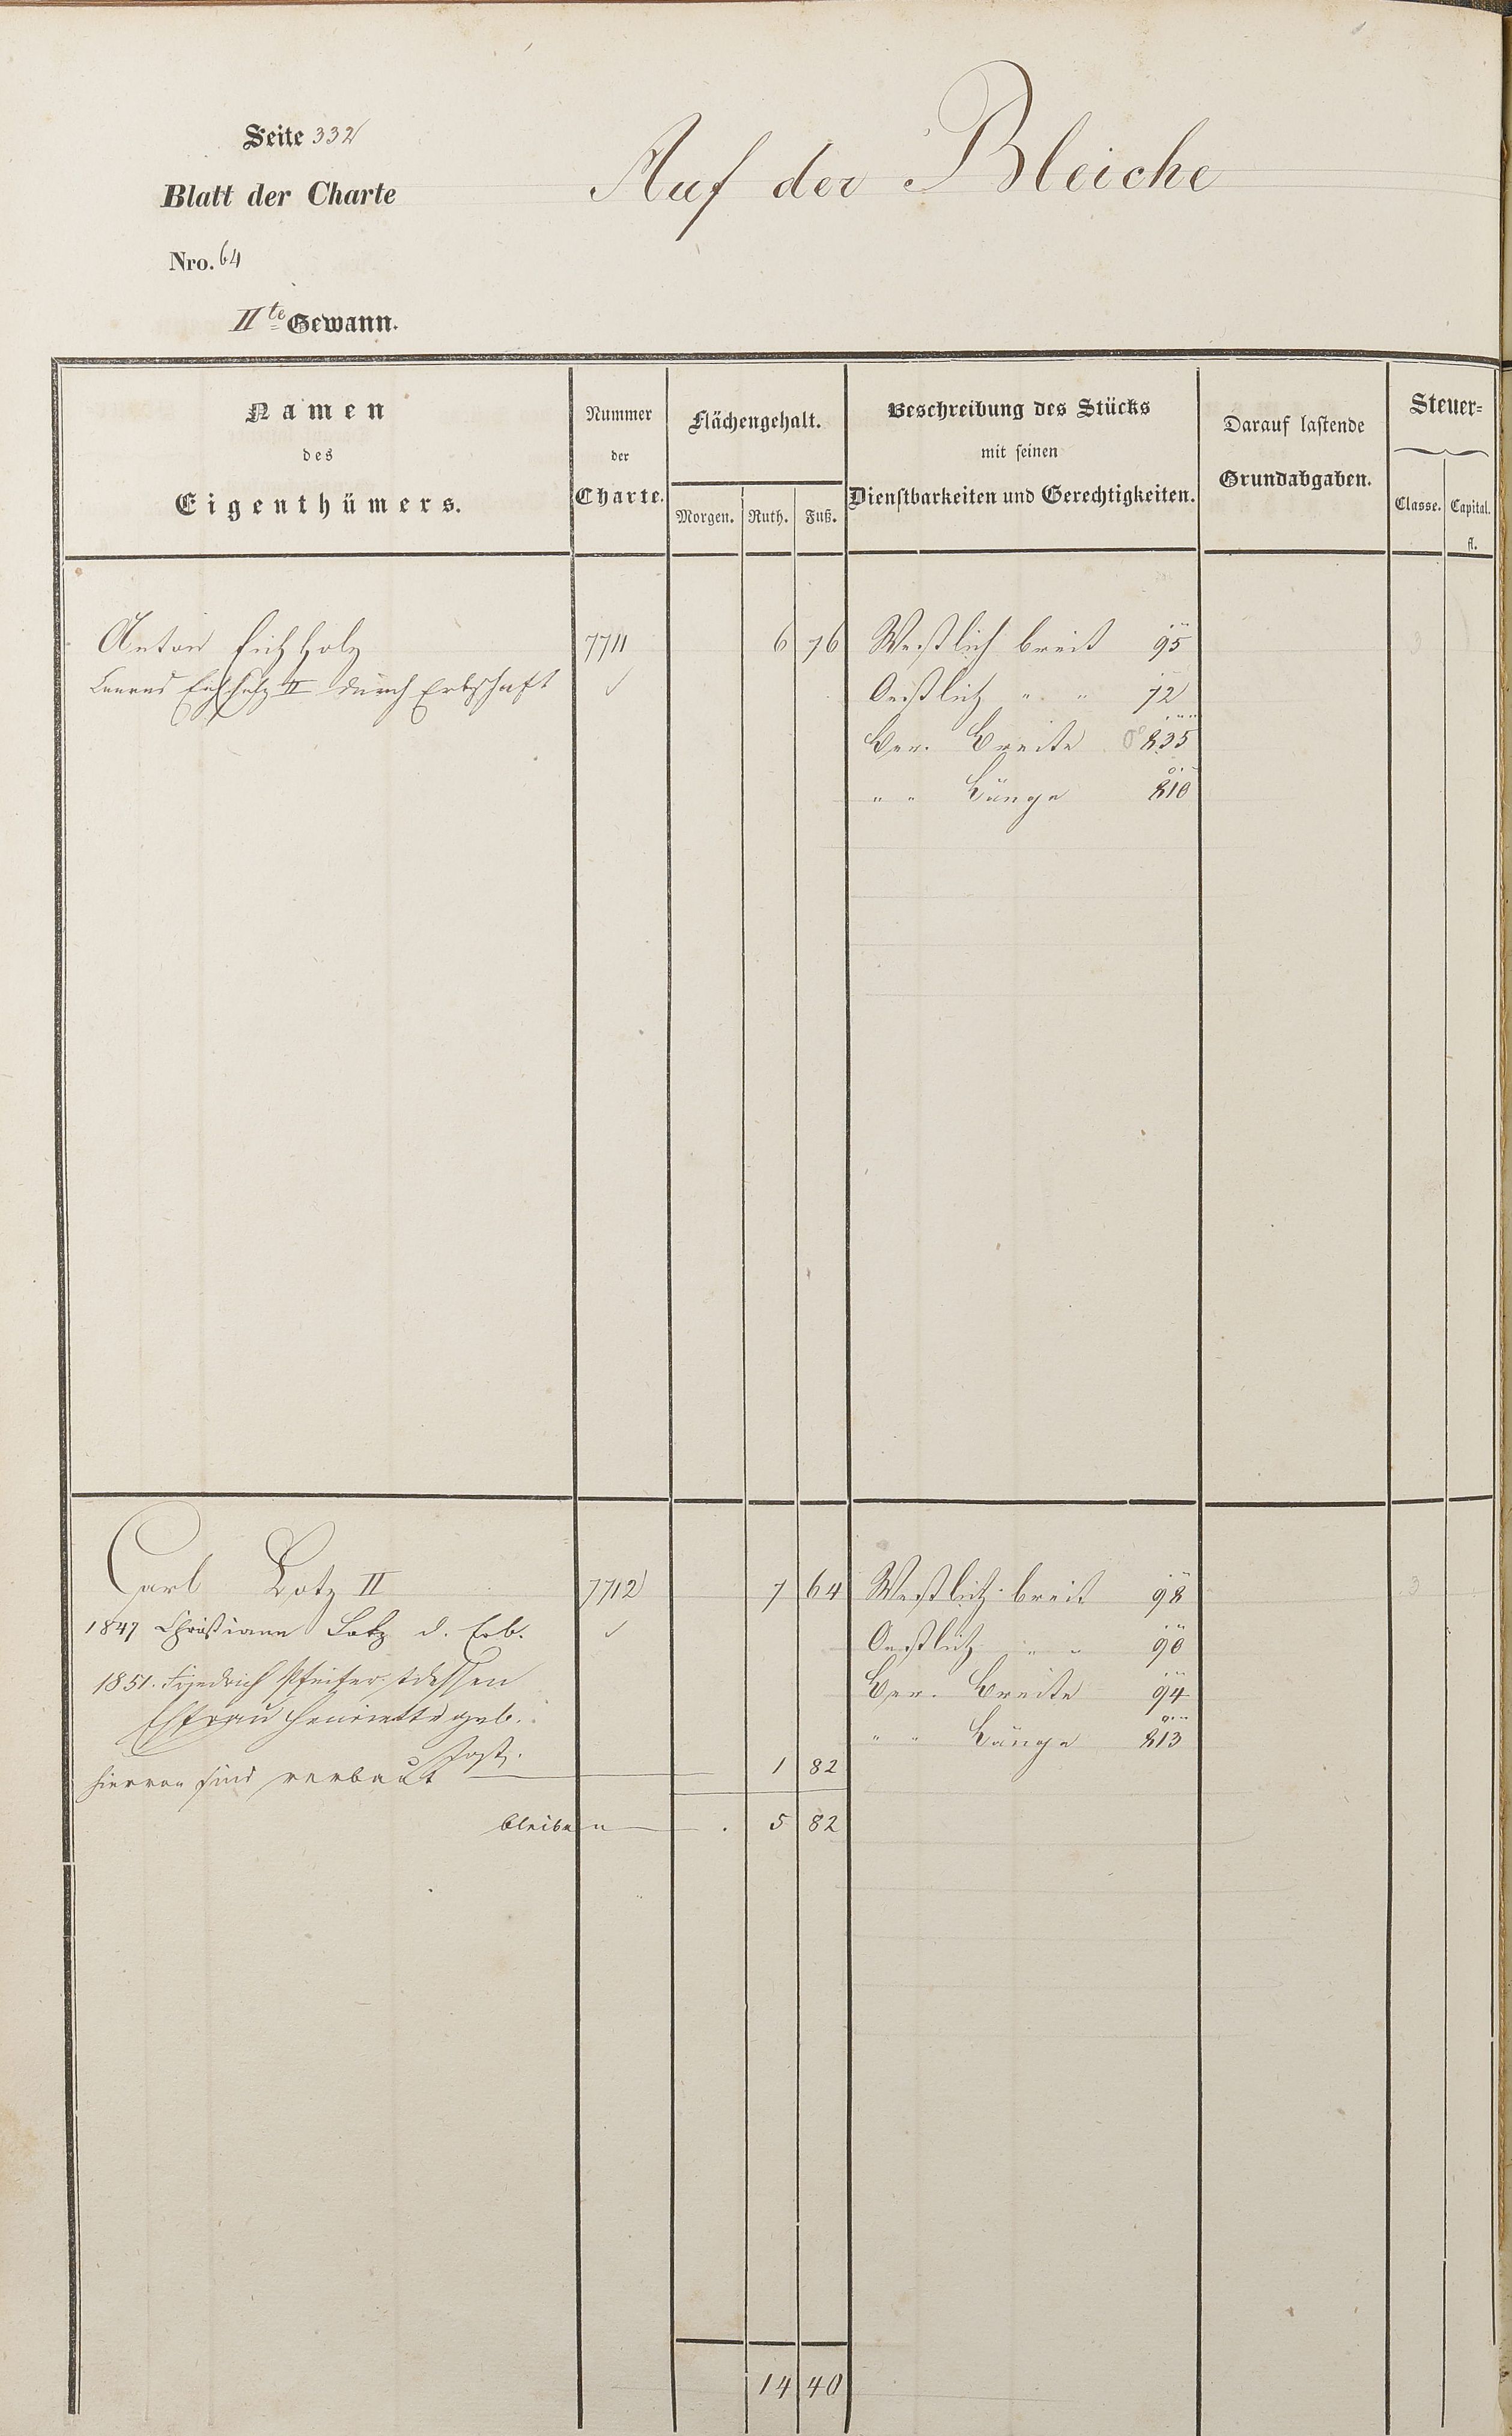 Seite 332
Auf der Bleiche
Blatt der Charte
Nro. 64
IIte Gewann.
Namen des Eigenthümers.
Nummer der Charte.
Flächengehalt.
Morgen. Ruth. Fuß.
Beschreibung des Stücks mit seinen Dienstbarkeiten und Gerechtigkeiten.
Darauf lastende Grundabgaben.
Steuer=
Classe. Capital.
fl.
Anton Eichholz 7711 6 76 Westlich breit 95 3
Eichholz II durch Erbschaft Oestlich " " 72
Ger. Breite 835
" " Länge 810
Carl Lotz II 7712 7 64 Westlich breit 98 3
1847 Christiane Lotz d. Erb. Oestlich " " 90
1851. Friedrich Pfeifer dessen Ger. Breite 94
Ehfrau Henriette geb. " " Länge 813
hiervon sind verbaut 1 82
bleiben . 5 82
14 40